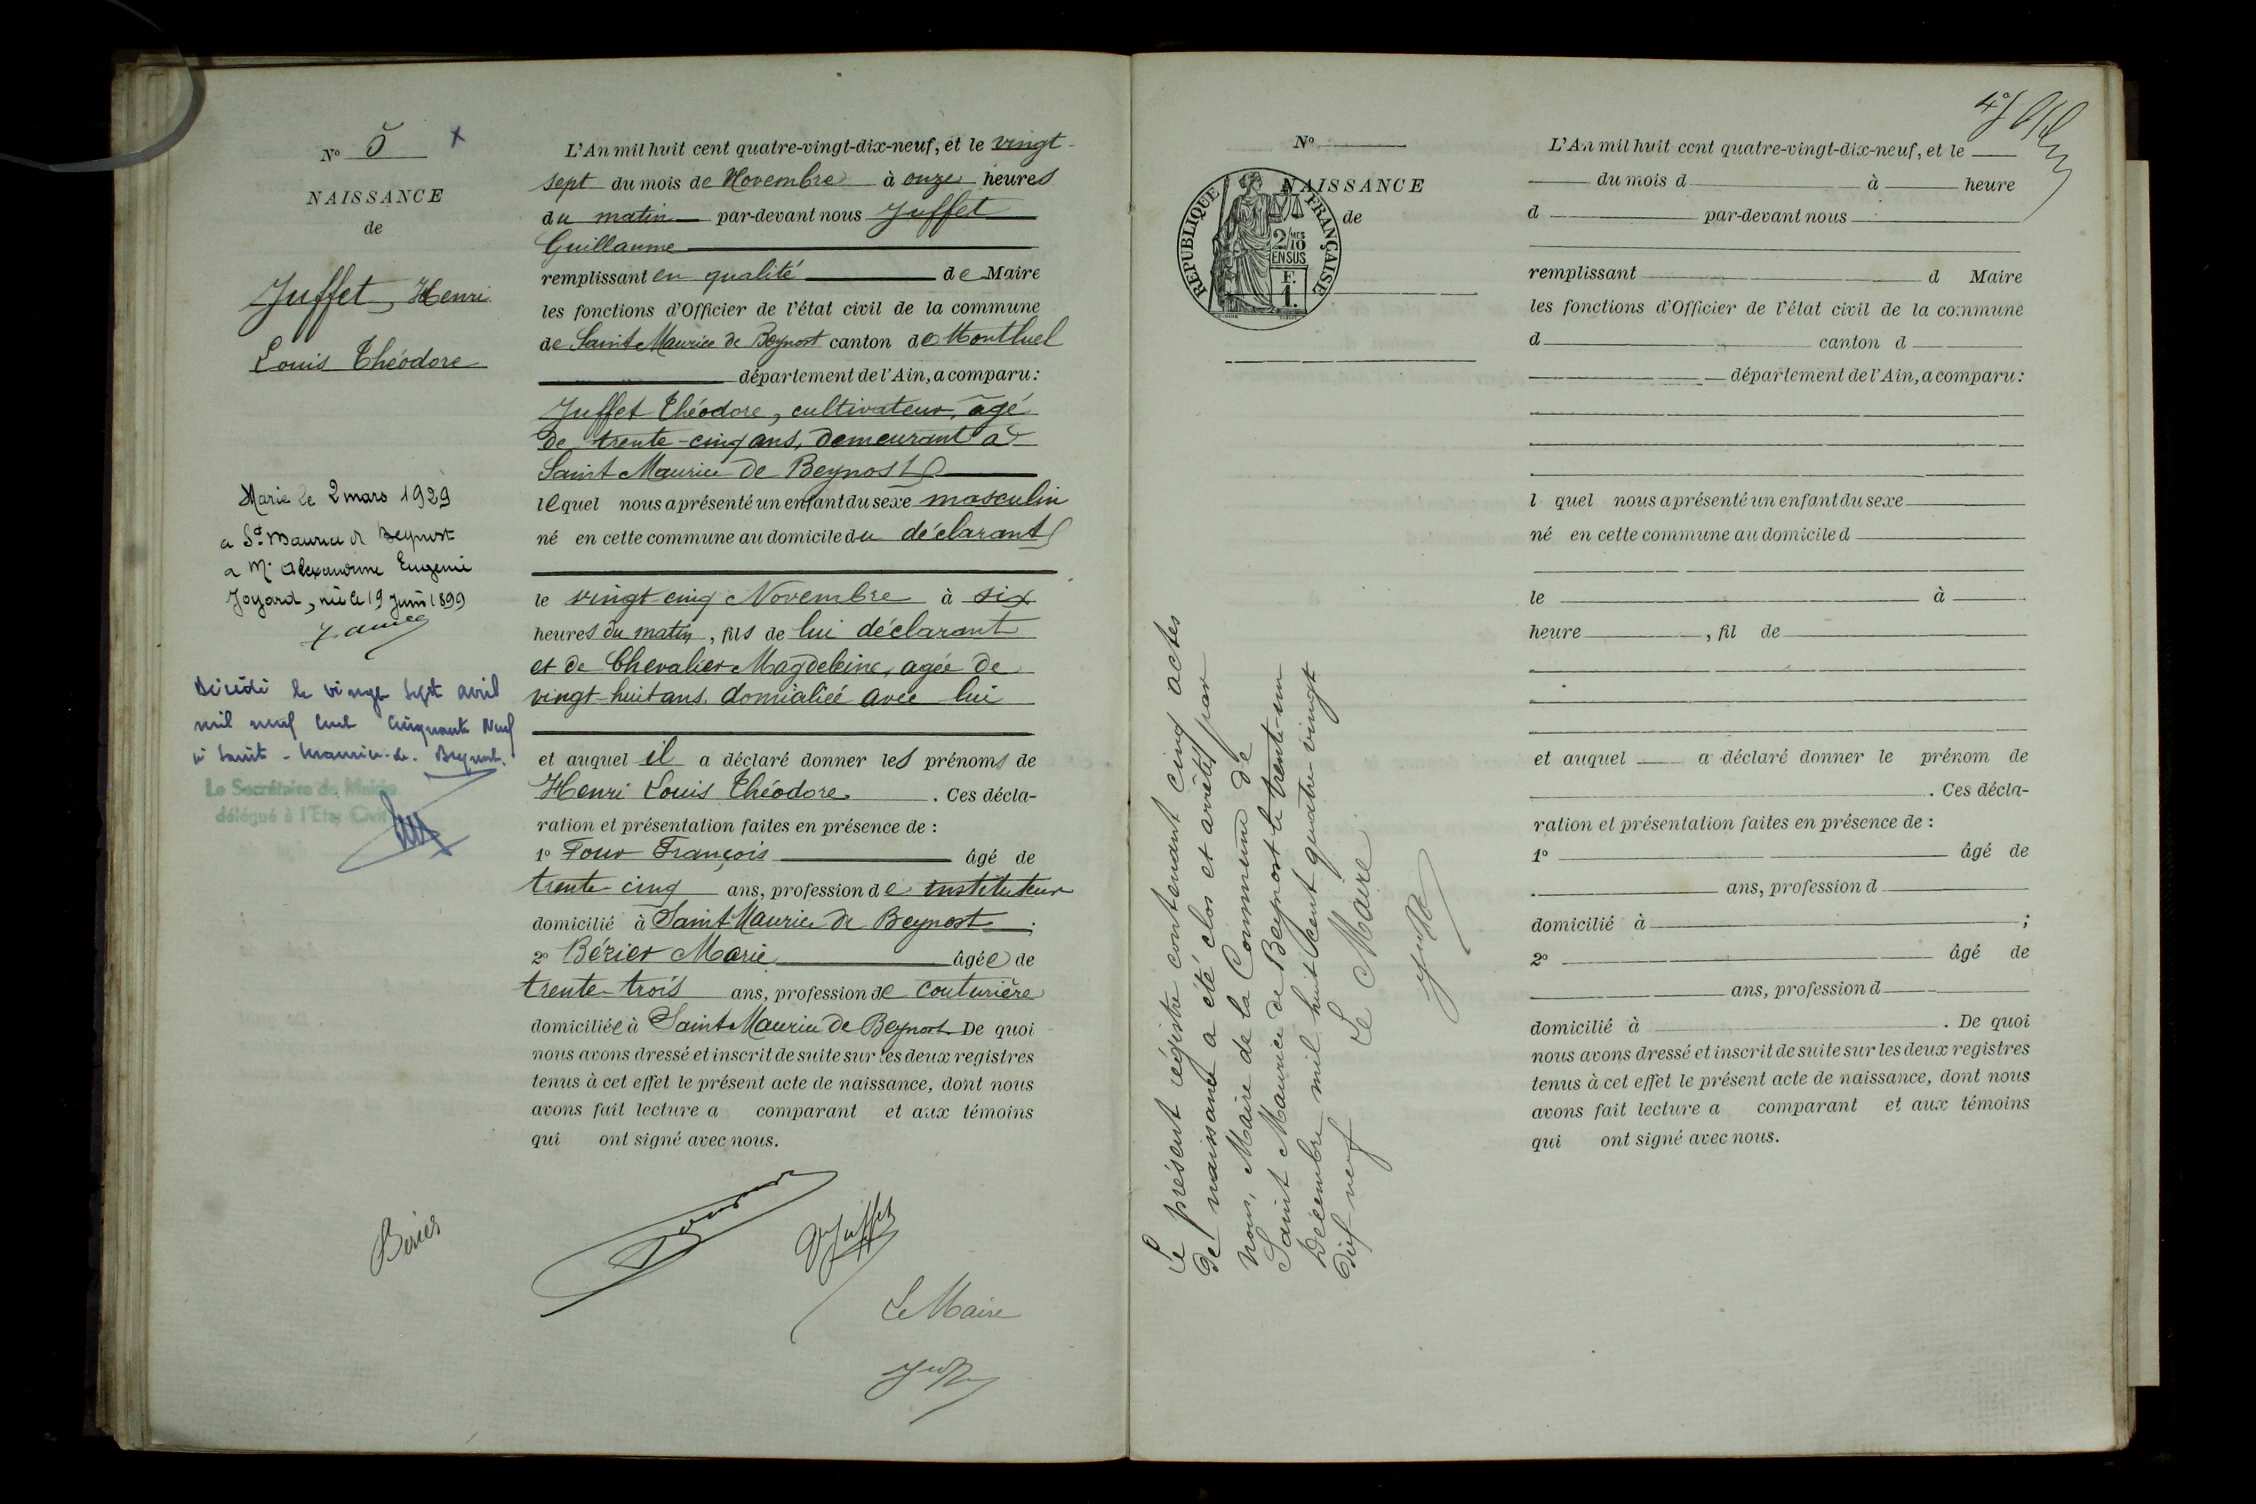 Nº 5 x
NAISSANCE
de
Juffet, Henri
Louis Théodore
Marié le 2 mars 1929
a St Maurice de Beynost
a Mlle Alexandrine Eugénie
Joyard, née le 19 Juin 1899
Décédé le vingt sept avril
mil neuf cent cinquante neuf
à Saint-Maurice-de-Beynost.
Le Secrétaire de Mairie
délégué à l'Etat Civil
L'An mil huit cent quatre-vingt-dix-neuf, et le vingt-
sept du mois de Novembre à onze heures
du matin par-devant nous Juffet
Guillaume
remplissant en qualité de Maire
les fonctions d'Officier de l'état civil de la commune
de Saint Maurice de Beynost canton de Montluel
département de l'Ain, a comparu :
Juffet Théodore, cultivateur, âgé
de trente-cinq ans, demeurant à
Saint Maurice de Beynost
lequel nous a présenté un enfant du sexe masculin
né en cette commune au domicile du déclarant
le vingt-cinq Novembre à six
heures du matin, fils de lui déclarant
et de Chevalier Magdeleine, agée de
vingt-huit ans, domiciliée avec lui
et auquel il a déclaré donner les prénoms de
Henri Louis Théodore. Ces décla-
ration et présentation faites en présence de :
1º Four François âgé de
trente cinq ans, profession de instituteur
domicilié à Saint Maurice de Beynost ;
2º Bérier Marie âgée de
trente-trois ans, profession de couturière
domiciliée à Saint Maurice de Beynost De quoi
nous avons dressé et inscrit de suite sur les deux registres
tenus à cet effet le présent acte de naissance, dont nous
avons fait lecture a comparant et aux témoins
qui ont signé avec nous.
Berier
Juffet
Le Maire
Juffet
Le présent régistre contenant cinq actes
de naissance a été clos et arrêté par
Nous, Maire de la Commune de
Saint Maurice de Beynost le trente-un
Décembre mil huit cent quatre-vingt
dix-neuf
Le Maire
Juffet
Nº
NAISSANCE
de
REPUBLIQUE FRANÇAISE
2/10 MES
EN SUS
F.
1.
L'An mil huit cent quatre-vingt-dix-neuf, et le
du mois d à heure
d par-devant nous
remplissant d Maire
les fonctions d'Officier de l'état civil de la commune
d canton d
département de l'Ain, a comparu :
l quel nous a présenté un enfant du sexe
né en cette commune au domicile d
le à
heure , fil de
et auquel a déclaré donner le prénom de
. Ces décla-
ration et présentation faites en présence de :
1º âgé de
ans, profession d
domicilié à ;
2º âgé de
ans, profession d
domicilié à . De quoi
nous avons dressé et inscrit de suite sur les deux registres
tenus à cet effet le présent acte de naissance, dont nous
avons fait lecture a comparant et aux témoins
qui ont signé avec nous.